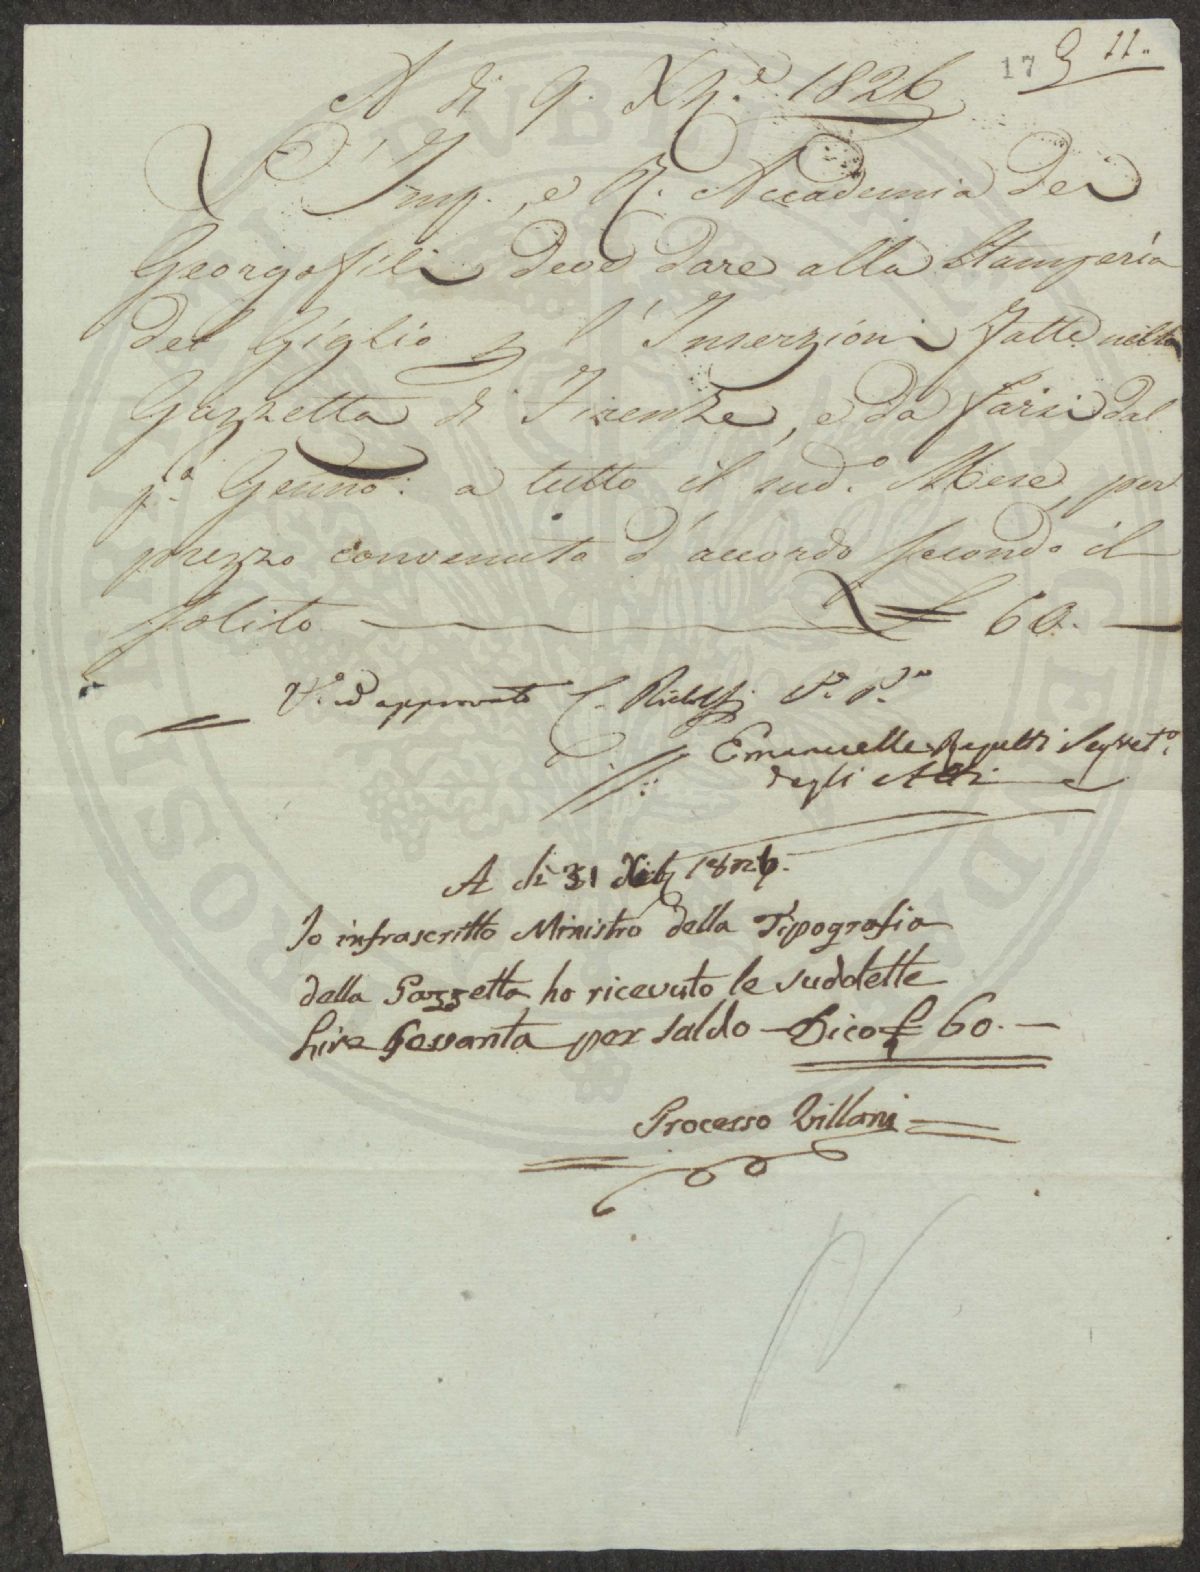 17 9 11.
A dì 9. Xbre. 1826
L'Imp., e R. Accademia dei
Georgofili deve dare alla Stamperia
del Giglio p l'Inserzioni fatte nella
Gazzetta di Firenze, e da farsi dal
p.o Genno: a tutto il sud.o Mese, per
prezzo convenuto d'accordo secondo il
solito £ 60.—
V.o ed approvato C. Ridolfi
Emanuelle Repetti Segret.o
degli Atti
A dì 31 Xb 1826.
Io infrascritto Ministro della Tipografia
della Gazzetta ho ricevuto le suddette
Lire Sessanta per saldo — Dico £ 60.—
Processo Villani
PUBLICAE
PROSPERITATI